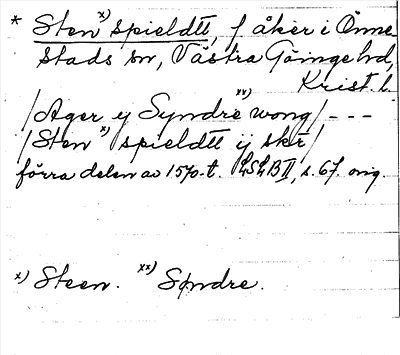 * Sten x) spieldtt, f åker i Önne-
stads sn, Västra Göinge hd,
Krist. l.
/Ager ij Syndre xx) wong/ - - -
/Sten x) spieldtt ij skr/
förra delen av 1570-t. LSLB II, s. 67. orig.
x) Steen. xx) Søndre.